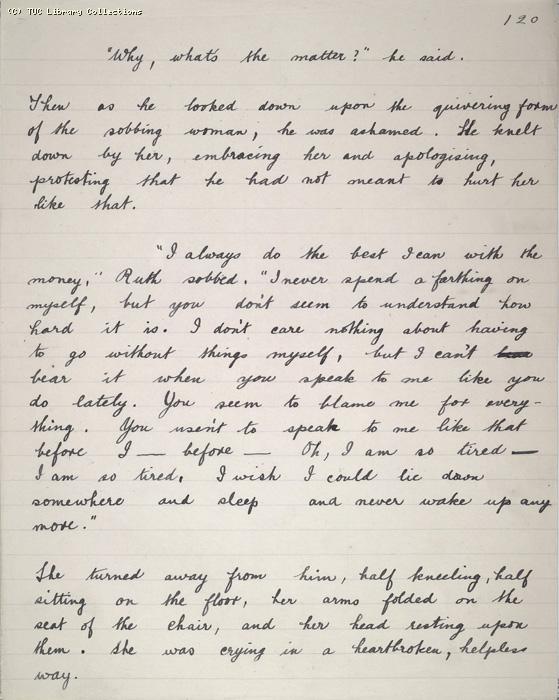 (C) TUC Library Collections
120
"Why, what's the matter?" he said.
Then as he looked down upon the quivering form
of the sobbing woman, he was ashamed. He knelt
down by her, embracing her and apologising,
protesting that he had not meant to hurt her
like that.
"I always do the best I can with the
money," Ruth sobbed. "I never spend a farthing on
myself, but you don't seem to understand how
hard it is. I don't care nothing about having
to go without things myself, but I can't
bear it when you speak to me like you
do lately. You seem to blame me for every-
thing. You usen't to speak to me like that
before I — before — Oh, I am so tired —
I am so tired. I wish I could lie down
somewhere and sleep and never wake up any
more."
She turned away from him, half kneeling, half
sitting on the floor, her arms folded on the
seat of the chair, and her head resting upon
them. She was crying in a heartbroken, helpless
way.